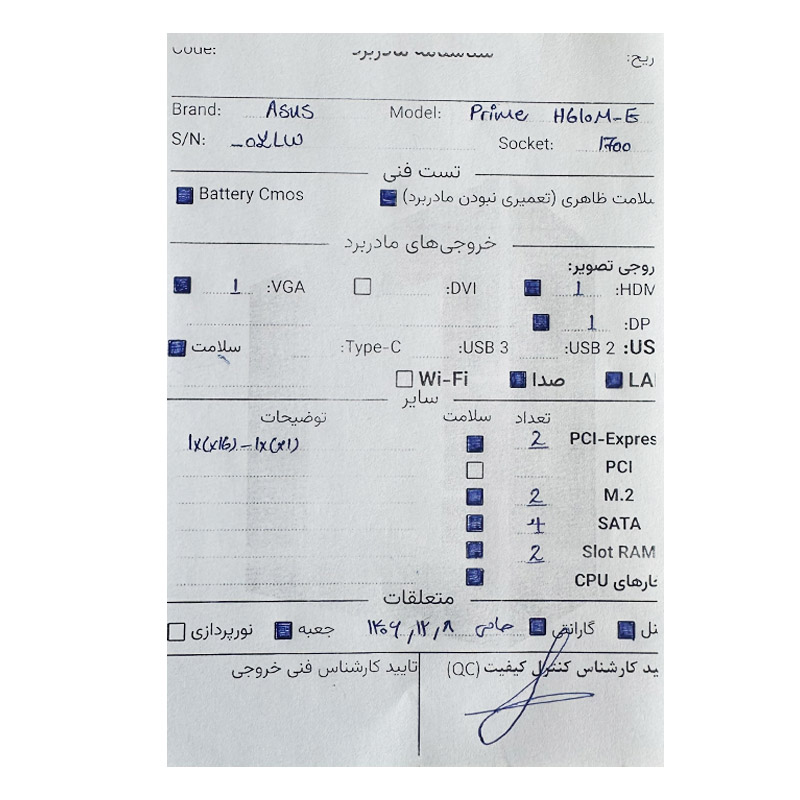 Code: شناسنامه مادربرد ریخ:
Brand: Asus Model: Prime H610M-E
S/N: Socket: 1700
تست فنی
سلامت ظاهری (تعمیری نبودن مادربرد) Battery Cmos
خروجی‌های مادربرد
روجی تصویر:
HDM: 1 DVI: VGA: 1
DP: 1
US: USB 2: USB 3: Type-C: سلامت
LA صدا Wi-Fi
سایر
تعداد سلامت توضیحات
PCI-Expres 2 1x(x16) - 1x(x1)
PCI
M.2 2
SATA 4
Slot RAM 2
ارهای CPU
متعلقات
نل گارانتی ۱۴۰۶,۱۲,۸ جعبه نورپردازی
ید کارشناس کنترل کیفیت (QC) تایید کارشناس فنی خروجی